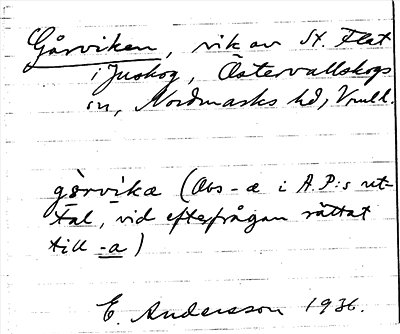 Gårviken, vik av St. Flat
i Juskog, Östervallskogs
sn, Nordmarks hd, Vrml.
gȯrvika (Obs -a i A.P:s ut-
tal, vid efterfrågan rättat
till -a)
E. Andersson 1936.